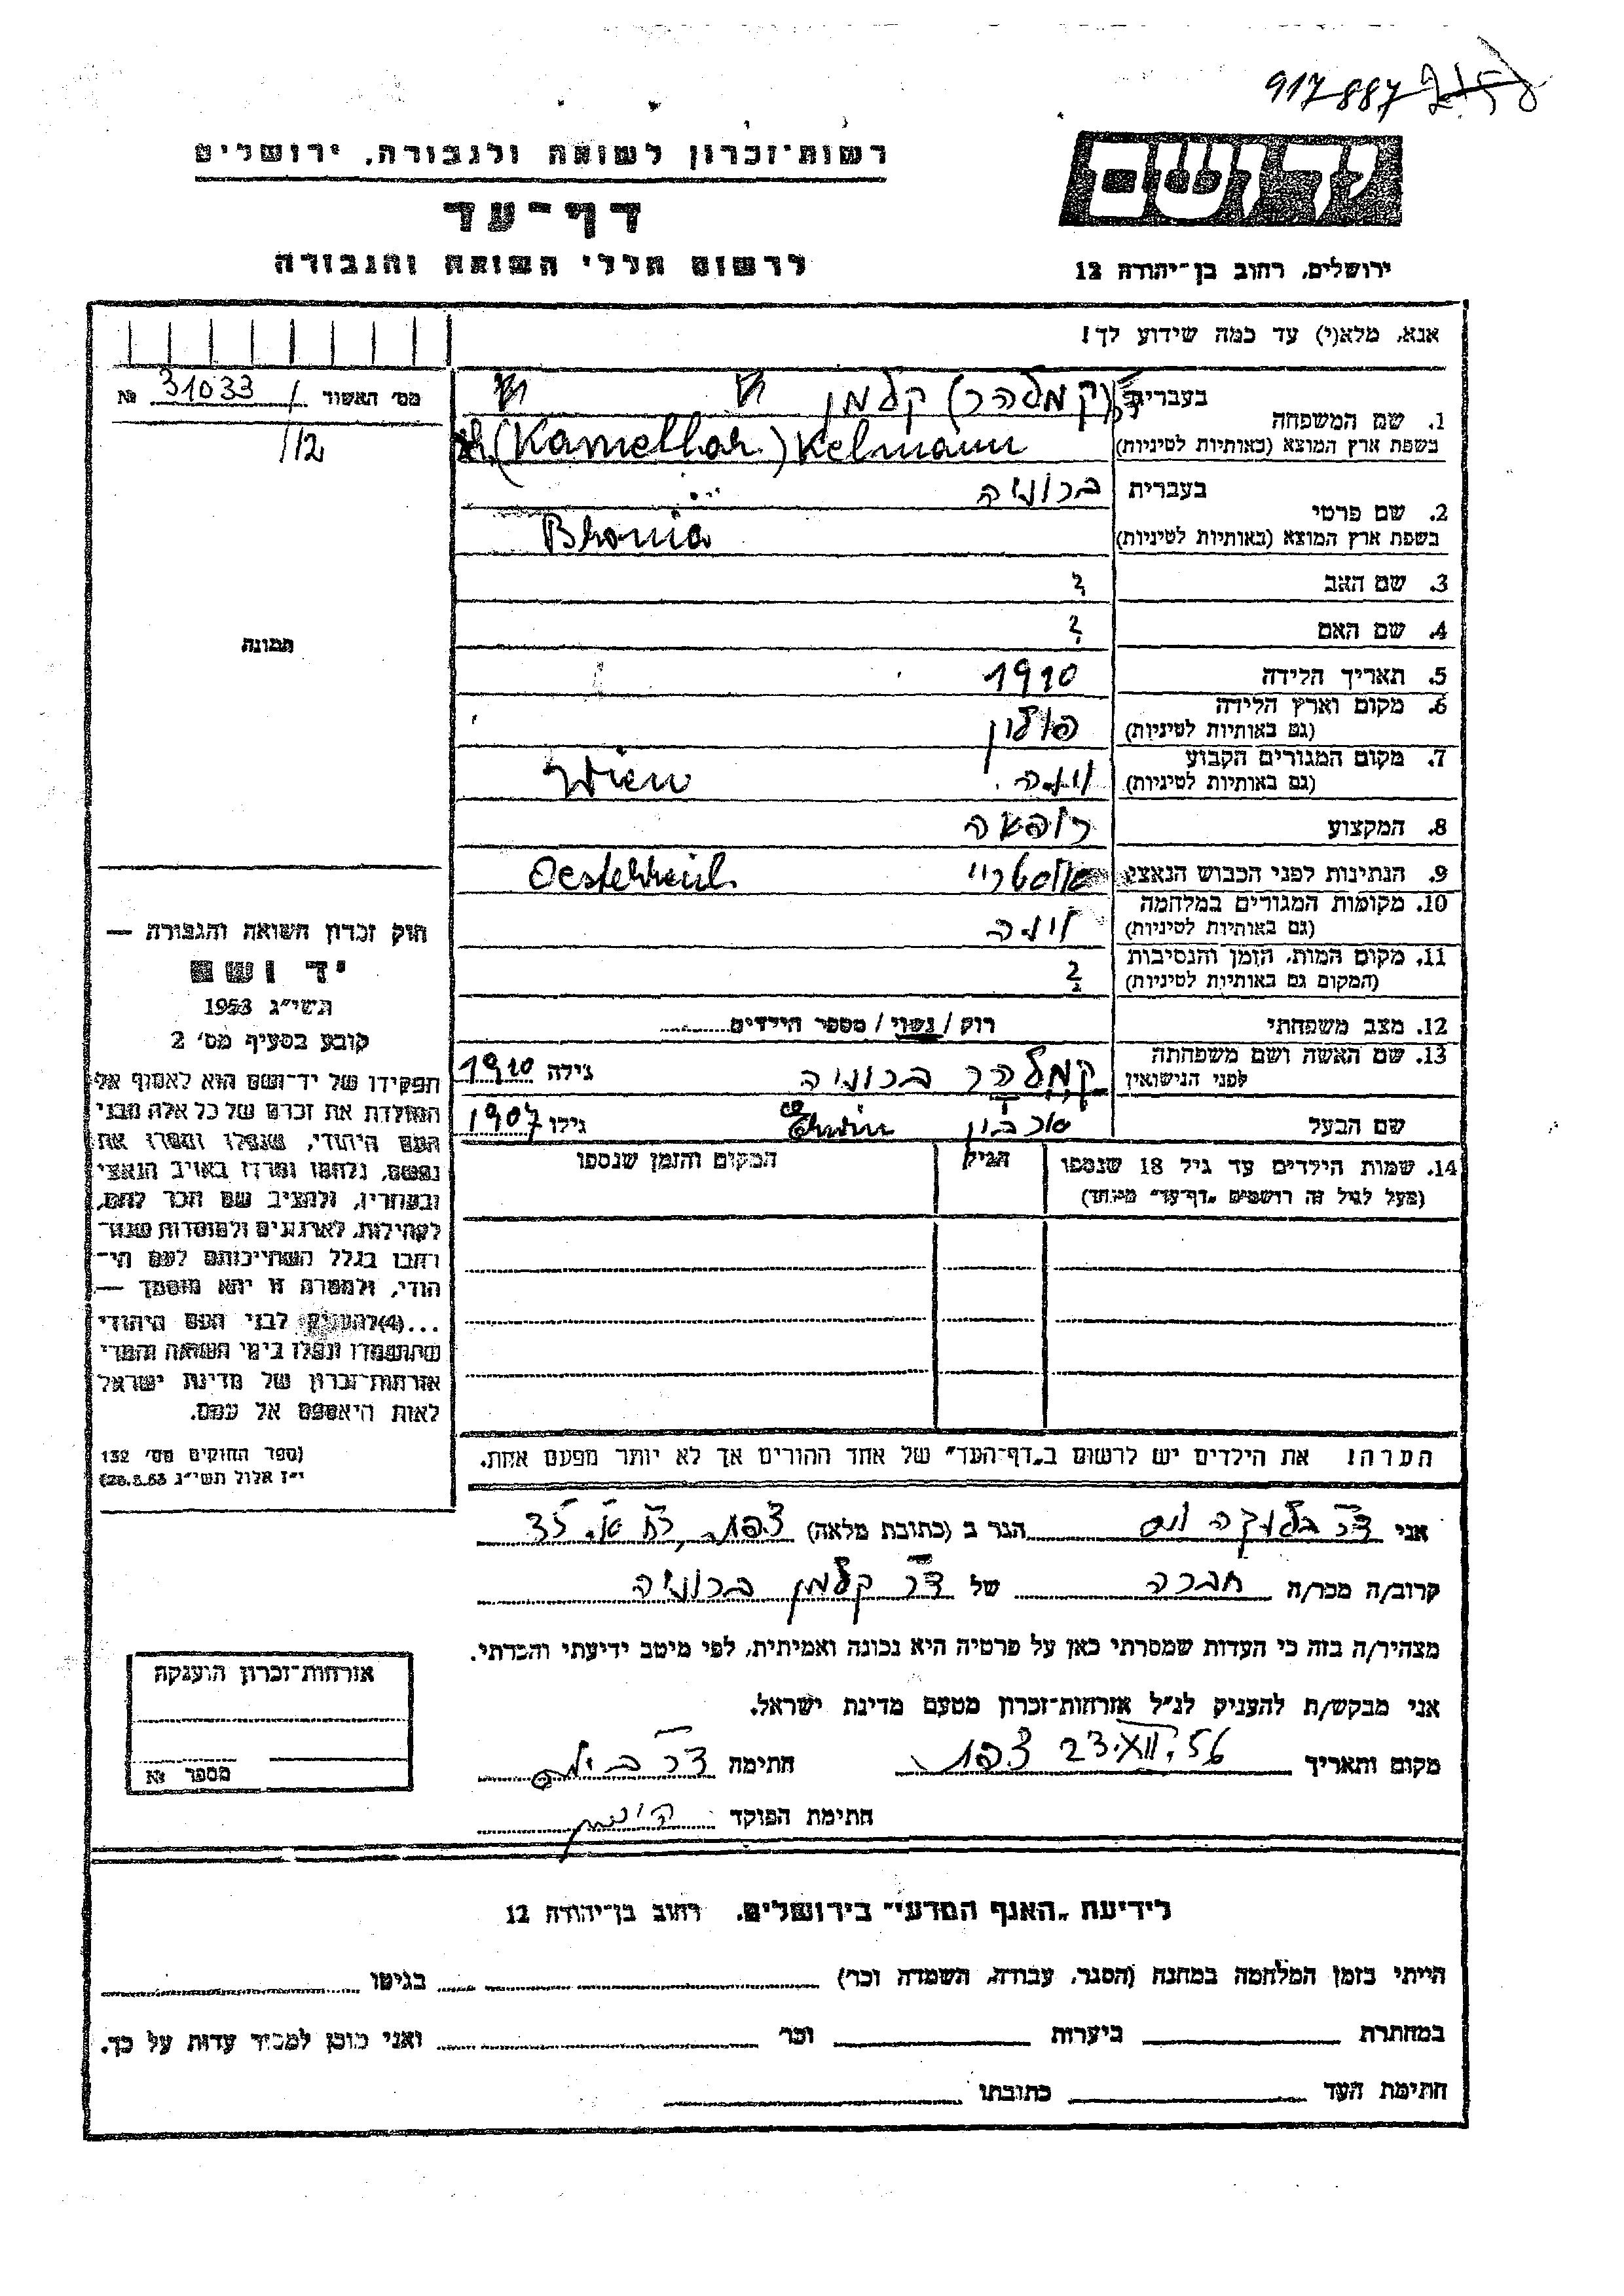 917887
רשות־זכרון לשואה ולגבורה, ירושלים
יד ושם
דף־עד
לרשום חללי השואה והגבורה
ירושלים, רחוב בן־יהודה 12
אנא, מלא(י) עד כמה שידוע לך!
מס' האשור 31033 № /
112
1. שם המשפחה
בעברית (קמלהר) קלמן
בשפת ארץ המוצא (באותיות לטיניות) (Kamelhar) Kelmann
2. שם פרטי
בעברית ברוניה
בשפת ארץ המוצא (באותיות לטיניות) Bronia
3. שם האב ?
4. שם האם ?
תמונה
5. תאריך הלידה 1910
6. מקום וארץ הלידה פולין
(גם באותיות לטיניות)
7. מקום המגורים הקבוע וינה Wien
(גם באותיות לטיניות)
8. המקצוע רופאה
9. הנתינות לפני הכבוש הנאצי אוסטריי Oesterreich
10. מקומות המגורים במלחמה וינה
(גם באותיות לטיניות)
11. מקום המות, הזמן והנסיבות ?
(המקום גם באותיות לטיניות)
12. מצב משפחתי רווק / נשוי / מספר הילדים
13. שם האשה ושם משפחתה קמלהר ברוניה גילה 1910
לפני הנישואין
שם הבעל Erwin גילו 1907
14. שמות הילדים עד גיל 18 שנספו הגיל המקום והזמן שנספו
(מעל לגיל זה רושמים "דף־עד" מיוחד)
חוק זכרון השואה והגבורה —
יד ושם
תשי"ג 1953
קובע בסעיף מס' 2
תפקידו של יד־ושם הוא לאסוף אל
המולדת את זכרם של כל אלה מבני
העם היהודי, שנפלו ומסרו את
נפשם, נלחמו ומרדו באויב הנאצי
ובעוזריו, ולהציב שם וזכר להם,
לקהילות, לארגונים ולמוסדות שנח־
רחבו בגלל השתייכותם לעם הי־
הודי, ולמטרה זו יהא מוסמך —
...(4) להעניק לבני העם היהודי
שהושמדו ונפלו בימי השואה והמרי
אזרחות־זכרון של מדינת ישראל
לאות היאספם אל עמם.
(ספר החוקים מס' 132
י"ז אלול תשי"ג 28.8.53)
הערה! את הילדים יש לרשום ב"דף־העד" של אחד ההורים אך לא יותר מפעם אחת.
אני דר הגר ב (כתובת מלאה) צפת,
קרוב/ה מכר/ה חברה של דר קלמן ברוניה
מצהיר/ה בזה כי העדות שמסרתי כאן על פרטיה היא נכונה ואמיתית, לפי מיטב ידיעתי והכרתי.
אני מבקש/ת להעניק לנ"ל אזרחות־זכרון מטעם מדינת ישראל.
מקום ותאריך צפת 23.XII.56 חתימה דר
חתימת הפוקד
אזרחות־זכרון הוענקה
מספר №
לידיעת "האגף המדעי" בירושלים, רחוב בן־יהודה 12
הייתי בזמן המלחמה במחנה (הסגר, עבודה, השמדה וכו') בגיטו
במחתרת ביערות וכו' ואני מוכן למסור עדות על כך.
חתימת העד כתובתו